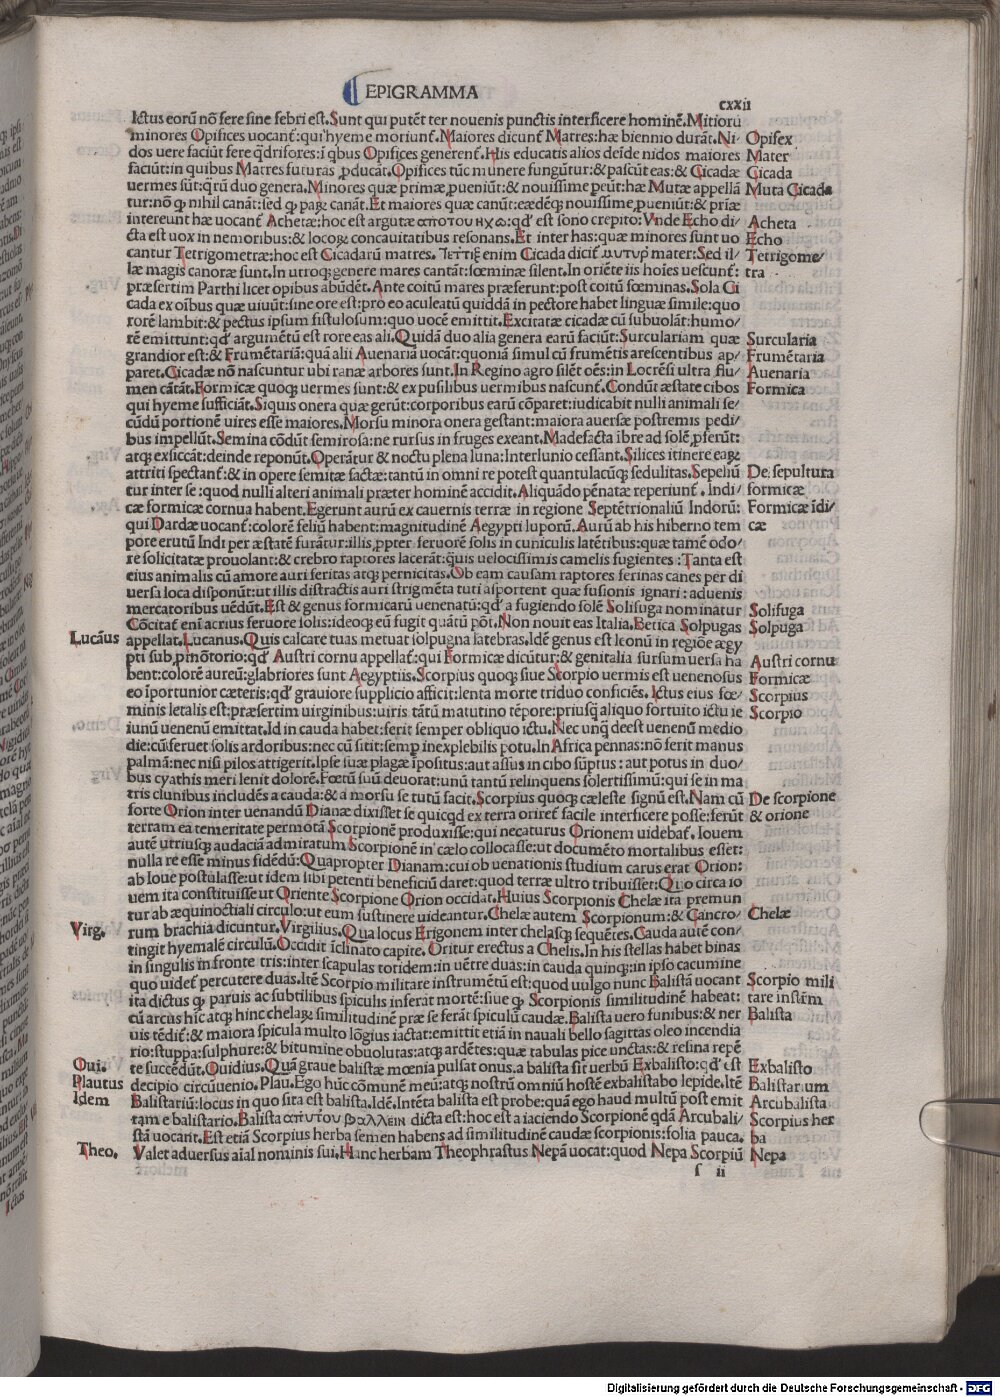 EPIGRAMMA
cxxii
Ictus eorū nō fere sine febri est. Sunt qui putēt ter nouenis punctis interficere hominē. Mitiorū
minores Opifices uocant: qui hyeme moriunt. Maiores dicunt Matres: hæ biennio durāt. Ni-
dos uere faciūt fere q̄drifores: ī qbus Opifices generent. His educatis alios deīde nidos maiores
faciūt: in quibus Matres futuras ꝓducāt. Opifices tūc munere fungūtur: & pascūt eas: & Cicadæ
uermes sūt: q̄rū duo genera. Minores quæ primæ ꝓueniūt: & nouissime peūt: hæ Mutæ appellā
tur: nō qꝫ nihil canāt: sed qꝫ paꝝ canāt. Et maiores quæ canūt: eædēqꝫ nouissime ꝓueniūt: & priæ
intereunt hæ uocant Achetæ: hoc est argutæ απο του ηχω: qd' est sono crepito: Vnde Echo di-
cta est uox in nemoribus: & locoꝝ concauitatibus resonans. Et inter has: quæ minores sunt uo
cantur Tetrigometræ: hoc est Cicadarū matres. Τεττιξ enim Cicada dicit μυτυρ mater: Sed il-
læ magis canoræ sunt. In utroqꝫ genere mares cantāt: sœminæ silent. In oriēte iis hoīes uescunt:
præsertim Parthi licet opibus abūdēt. Ante coitū mares præferunt: post coitū sœminas. Sola Ci
cada ex oībus quæ uiuūt: sine ore est: pro eo aculeatū quiddā in pectore habet linguæ simile: quo
rorē lambit: & pectus ipsum fistulosum: quo uocē emittit. Excitatæ cicadæ cū subuolāt: humo-
rē emittunt: qd' argumētū est rore eas ali. Quidā duo alia genera earū faciūt: Surculariam quæ
grandior est: & Frumētariā: quā alii Auenariā uocāt: quoniā simul cū frumētis arescentibus ap-
paret. Cicadæ nō nascuntur ubi raræ arbores sunt. In Regino agro silēt oēs: in Locrēsi ultra flu-
men cātāt. Formicæ quoqꝫ uermes sunt: & ex pusilibus uermibus nascunt. Condūt æstate cibos
qui hyeme sufficiāt. Siquis onera quæ gerūt: corporibus earū cōparet: iudicabit nulli animali se-
cūdū portionē uires esse maiores. Morsu minora onera gestant: maiora auersæ postremis pedi-
bus impellūt. Semina cōdūt semirosa: ne rursus in fruges exeant. Madefacta ībre ad solē ꝓferūt:
atqꝫ exsiccāt: deinde reponūt. Operātur & noctu plena luna: Interlunio cessant. Silices itinere eaꝝ
attriti spectant: & in opere semitæ factæ: tantū in omni re potest quantulacūqꝫ sedulitas. Sepeliū
tur inter se: quod nulli alteri animali præter hominē accidit. Aliquādo pēnatæ reperiunt. Indi-
cæ formicæ cornua habent. Egerunt aurū ex cauernis terræ in regione Septētrionaliū Indorū:
qui Dardæ uocant: colorē feliū habent: magnitudinē Aegypti luporū. Aurū ab his hiberno tem
pore erutū Indi per æstatē furātur: illis ꝓpter feruorē solis in cuniculis latētibus: quæ tamē odo-
re solicitatæ prouolant: & crebro raptores lacerāt: q̄uis uelocissimis camelis fugientes: Tanta est
eius animalis cū amore auri feritas atqꝫ pernicitas. Ob eam causam raptores ferinas canes per di
uersa loca disponūt: ut illis distractis auri strigmēta tuti asportent quæ fusionis ignari: aduenis
mercatoribus uēdūt. Est & genus formicarū uenenatū: qd' a fugiendo solē Solifuga nominatur
Cōcitat enī acrius feruore solis: ideoqꝫ eū fugit quātū pōt. Non nouit eas Italia. Betica Solpugas
appellat. Lucanus. Quis calcare tuas metuat solpugna latebras. Idē genus est leonū in regiōe ægy
pti sub ꝓmōtorio: qd' Austri cornu appellat: qui Formicæ dicūtur: & genitalia sursum uersa ha
bent: colorē aureū: glabriores sunt Aegyptiis. Scorpius quoqꝫ siue Scorpio uermis est uenenosus
eo īportunior cæteris: qd' grauiore supplicio afficit: lenta morte triduo conficiēs. Ictus eius sœ-
minis letalis est: præsertim uirginibus: uiris tātū matutino tēpore: priusq̄ aliquo fortuito ictu ie
iunū uenenū emittat. Id in cauda habet: ferit semper obliquo ictu. Nec unq̄ deest uenenū medio
die: cū seruet solis ardoribus: nec cū sitit: semꝑ inexplebilis potu. In Africa pennas: nō ferit manus
palmā: nec nisi pilos attigerit. Ipse suæ plagæ īpositus: aut assus in cibo sūptus: aut potus in duo-
bus cyathis meri lenit dolorē. Fœtū suū deuorat: unū tantū relinquens solertissimū: qui se in ma
tris clunibus includēs a cauda: & a morsu se tutū facit. Scorpius quoqꝫ cæleste signū est. Nam cū
forte Orion inter uenandū Dianæ dixisset se quicqd ex terra oriret facile interficere posse: ferūt
terram ea temeritate permotā Scorpionē produxisse: qui necaturus Orionem uidebat. Iouem
autē utriusqꝫ audaciā admiratum Scorpionē in cælo collocasse: ut documēto mortalibus esset:
nulla re esse minus fidēdū: Quapropter Dianam: cui ob uenationis studium carus erat Orion:
ab Ioue postulasse: ut idem sibi petenti beneficiū daret: quod terræ ultro tribuisset: Quo circa io
uem ita constituisse ut Oriente Scorpione Orion occidat. Huius Scorpionis Chelæ ita premun
tur ab æquinoctiali circulo: ut eum sustinere uideantur. Chelæ autem Scorpionum: & Cancro-
rum brachia dicuntur. Virgilius. Qua locus Erigonem inter chelasqꝫ sequētes. Cauda autē con-
tingit hyemalē circulū. Occidit īclinato capite. Oritur erectus a Chelis. In his stellas habet binas
in singulis in fronte tris: inter scapulas totidem: in uētre duas: in cauda quinqꝫ: in ipso cacumine
quo uidet percutere duas. Itē Scorpio militare instrumētū est: quod uulgo nunc Balistā uocant
ita dictus qꝫ paruis ac subtilibus spiculis inferat mortē: siue qꝫ Scorpionis similitudinē habeat:
cū arcus hīc atqꝫ hinc chelaꝝ similitudinē præ se ferāt spiculū caudæ. Balista uero funibus: & ner
uis tēdit: & maiora spicula multo lōgius iactat: emittit etiā in nauali bello sagittas oleo incendia
rio: stuppa: sulphure: & bitumine obuolutas: atqꝫ ardētes: quæ tabulas pice unctas: & resina repē
te succēdūt. Ouidius. Quā graue balistæ mœnia pulsat onus. a balista fit uerbū Exbalisto: qd' est
decipio circūuenio. Plau. Ego hūc cōmunē meū: atqꝫ nostrū omniū hostē exbalistabo lepide. Itē
Balistariū: locus in quo sita est balista. Idē. Intēta balista est probe: quā ego haud multū post emit
tam e balistario. Balista απο του βαλλειν dicta est: hoc est a iaciendo Scorpionē qdā Arcubali-
stā uocant. Est etiā Scorpius herba semen habens ad similitudinē caudæ scorpionis: folia pauca.
Valet aduersus aīal nominis sui. Hanc herbam Theophrastus Nepā uocat: quod Nepa Scorpiū
s ii
Opifex
Mater
Cicada
Muta Cicada
Acheta
Echo
Tetrigome-
tra
Surcularia
Frumētaria
Auenaria
Formica
De sepultura
formicæ
Formicæ īdi-
cæ
Solifuga
Solpuga
Austri cornu
Formicæ
Scorpius
Scorpio
De scorpione
& orione
Chelæ
Scorpio mili
tare instīm
Balista
Exbalisto
Balistarium
Arcubalista
Scorpius her
ba
Nepa
Lucāus
Virg.
Oui.
Plautus
Idem
Theo.
Digitalisierung gefördert durch die Deutsche Forschungsgemeinschaft - DFG